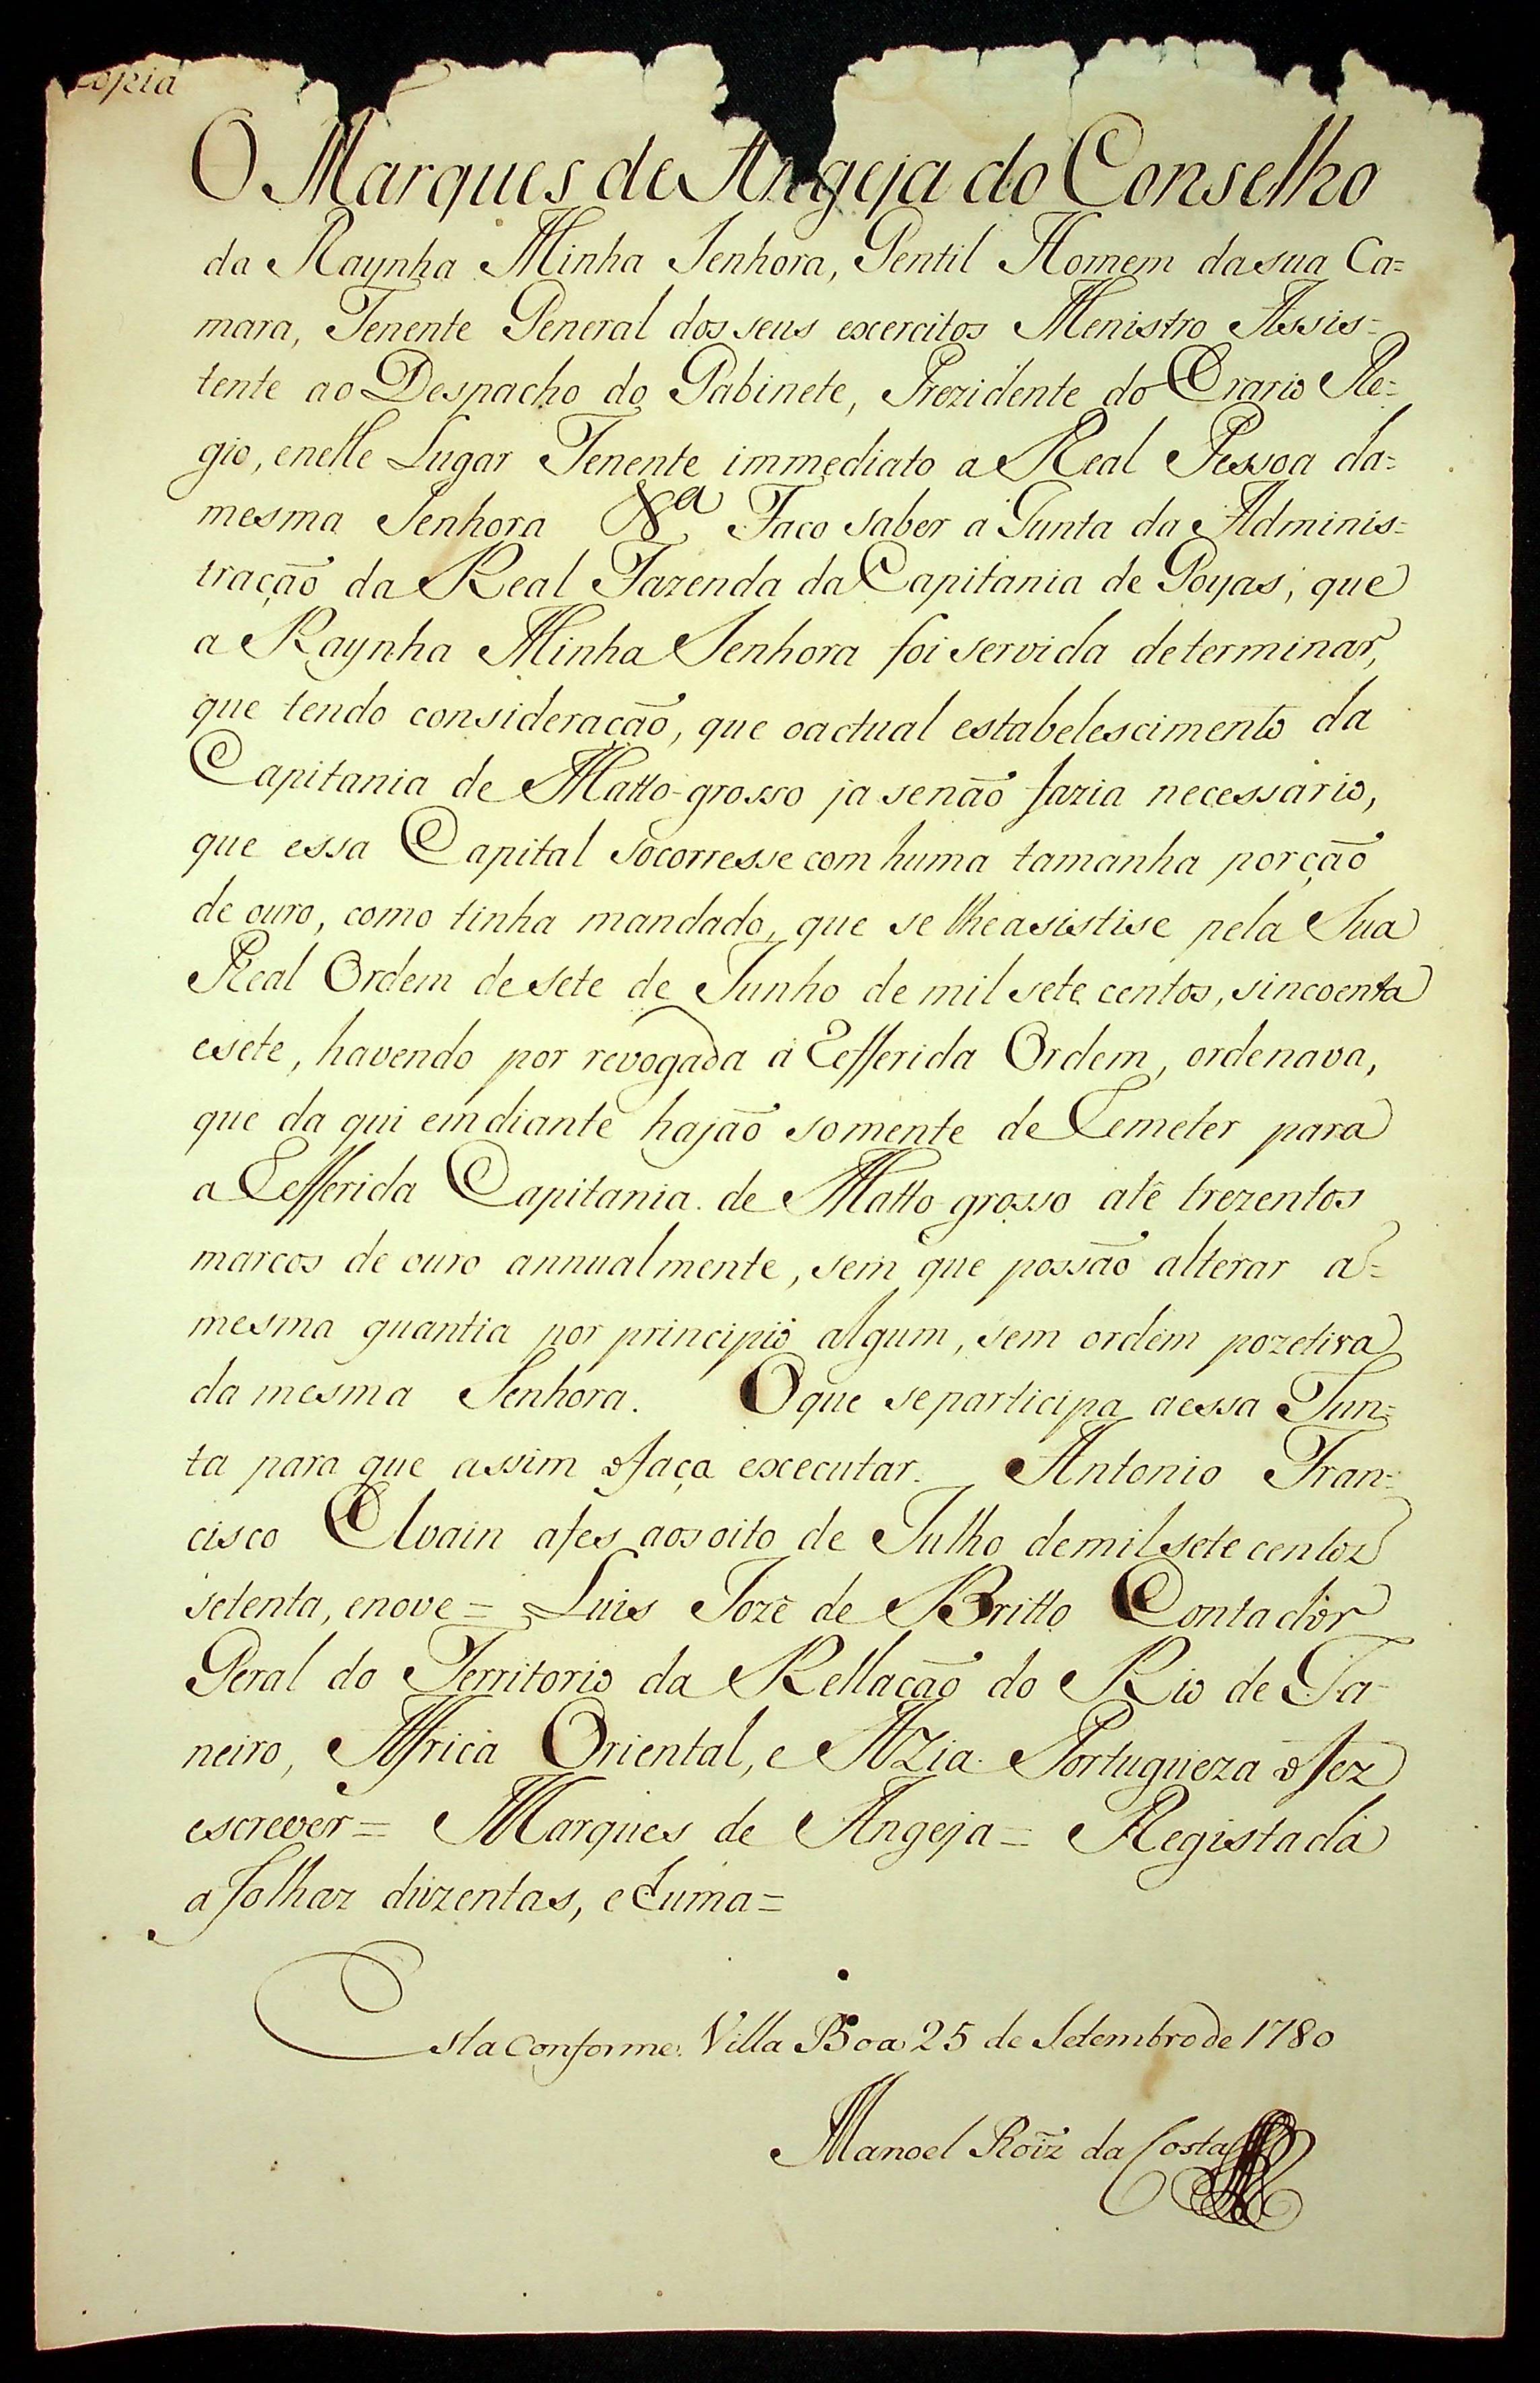 Copia
O Marques de Angeja do Conselho
da Raynha Minha Senhora, Gentil Homem da sua Ca=
mara, Tenente General dos seus excercitos Menistro Assis=
tente ao Despacho do Gabinete, Prezidente do Erario Re=
gio, enelle Lugar Tenente immediato a Real Pessoa da=
mesma Senhora &ª Faco saber a Junta da Adminis=
tração da Real Fazenda da Capitania de Goyas, que
a Raynha Minha Senhora foi servida determinar,
que tendo consideração, que oactual estabelescimento da
Capitania de Matto-grosso ja senão fazia necessario,
que essa Capital socorresse com huma tamanha porção
de ouro, como tinha mandado, que se lheasistise pela Sua
Real Ordem de sete de Junho de mil sete centos, sincoenta
esete, havendo por revogada a Refferida Ordem, ordenava,
que da qui emdiante hajão somente de Remeter para
a Refferida Capitania de Matto grosso atê trezentos
marcos de ouro annualmente, sem que possão alterar a=
mesma quantia por principio algum, sem ordem pozetiva
da mesma Senhora. Oque separticipa aessa Jun=
ta para que assim ofaça excecutar. Antonio Fran=
cisco Elvain afes aosoito de Julho demil sete centoz
setenta, enove= Luis Jozê de Britto Contador
Geral do Territorio da Rellação do Rio de Ja-
neiro, Africa Oriental, e AZia Portugueza ofez
escrever= Marques de Angeja= Registada
a folhaz duzentas, ehuma=
Esta Conforme. Villa Boa 25 de Setembro de 1780
Manoel Roĩz da Costa